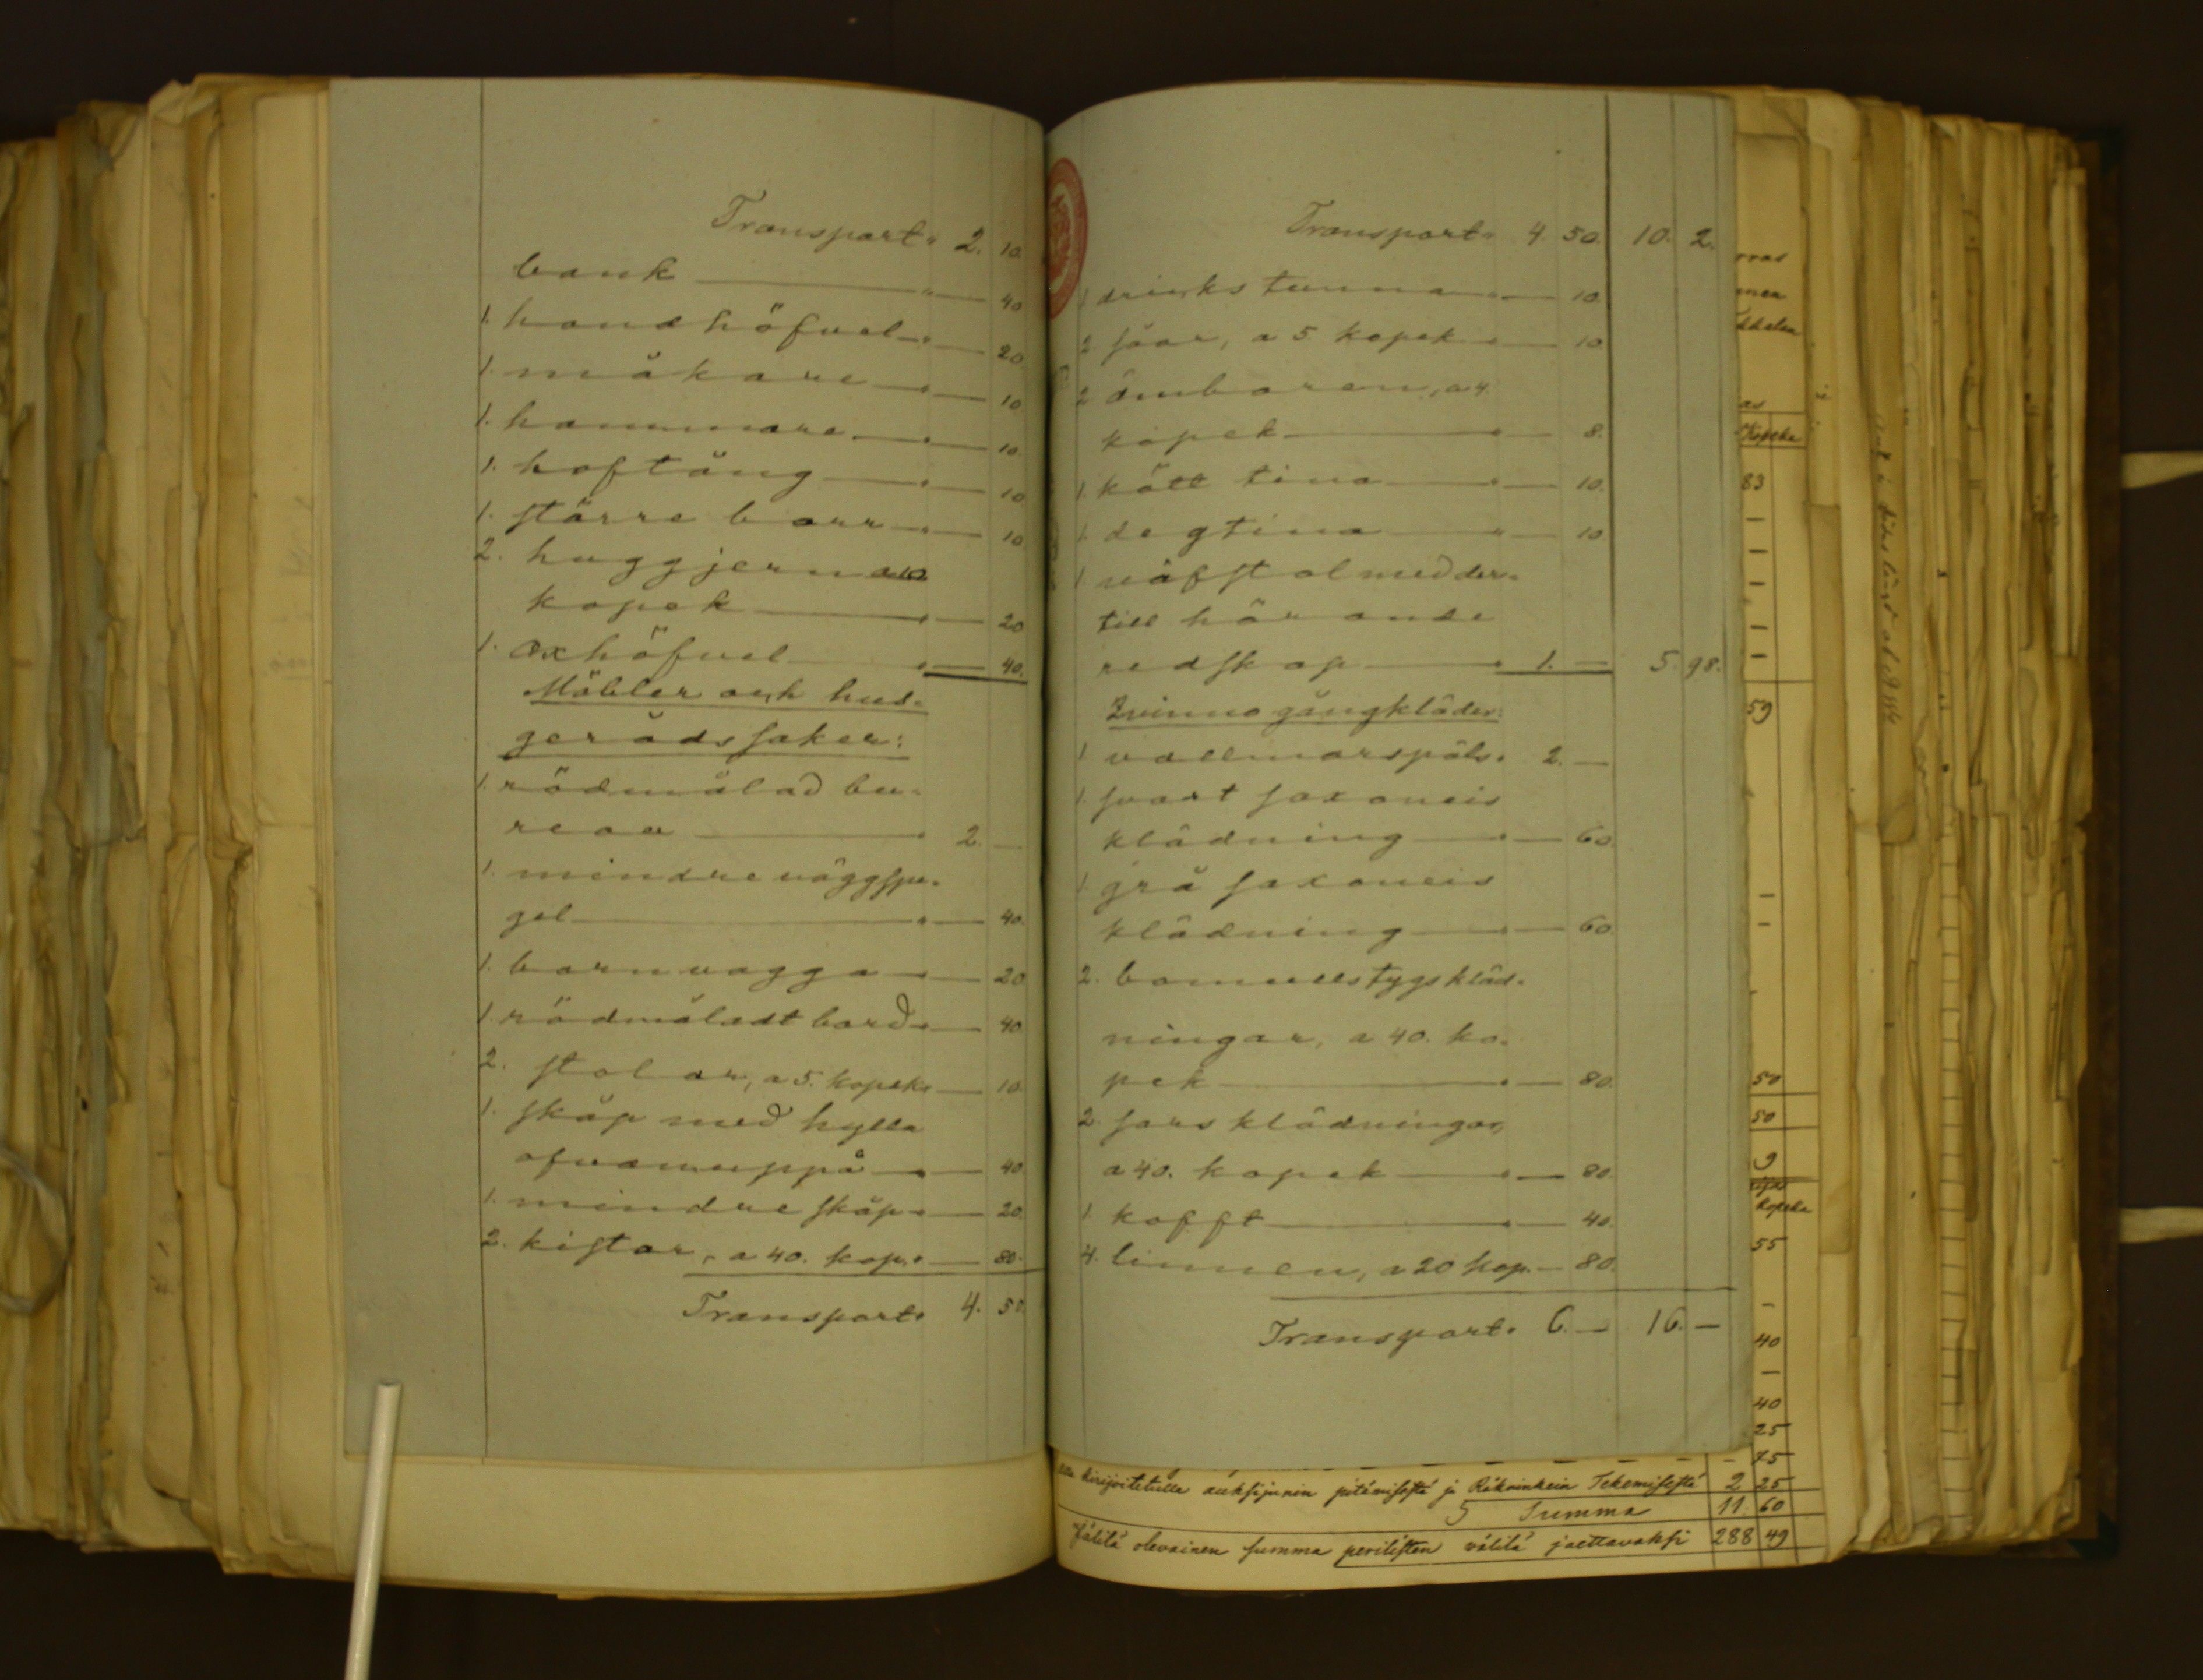 Transport " 2. 10.
bank " — 40
1. handhöfvel " — 20
1. måkare " — 10
1. hammare " — 10.
1. hoftång " — 10
1. större borr " — 10
2. huggjern a 10
kopek " — 20
1. oxhöfvel " — 40.
Möbler och hus-
gerådssaker:
1. rödmålad bu-
reau " 2. —
1. mindre väggspe-
gel " — 40.
1. barnvagga " — 20
1. rödmåladt bord " — 40
2. stolar, a 5. kopek " — 10
1. skåp med hylla
ofvanuppå " — 40
1. mindre skåp " — 20
2. kistor, a 40. kop. " — 80.
Transport " 4. 50.
Transport " 4. 50. 10. 2.
1 drickstunna " — 10.
2 såar, a 5 kopek " — 10
2 ämbaren, a 4.
kopek " — 8.
1. kött tina " — 10.
1. degtina " — 10
1 väfstol med der-
till hörande
redskap " 1. — 5. 98.
Qvinno gångkläder:
1 vallmarspäls " 2. —
1 svart saxoneis
klädning " — 60.
1 grå saxoneis
klädning " — 60
2. bomullstygsкläd-
ningar, a 40. ko-
pek " — 80.
2 sarsklädningar,
a 40. kopek " — 80.
1. kofft " — 40.
4. linnen, a 20 kop. — 80.
Transport " 6. — 16. —
Kopeka
83
59
50
50
9
kopeka
55
40
40
25
75
kirijoitetulla auksijunin pitämisestä ja Räkninkein Tekemisestä 2 25
Summa 11. 60
Jälilä olevainen summa perilisten välilä jaettavaksi 288 49